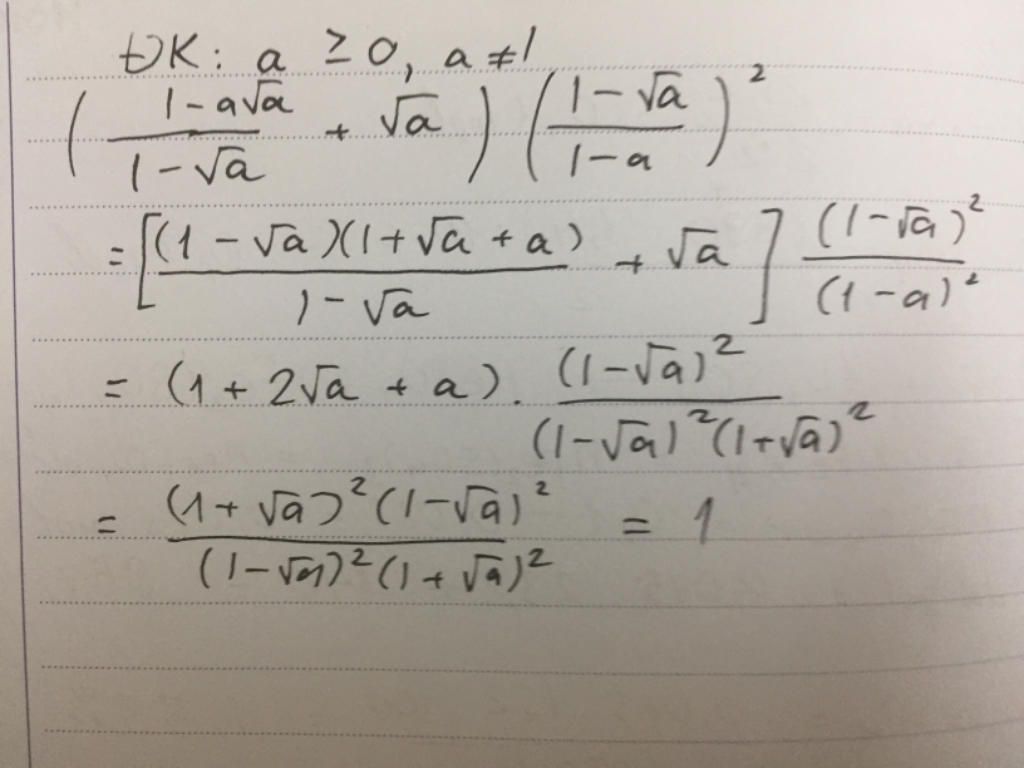 ĐK: a ≥ 0, a ≠ 1
( (1 - a√a)/(1 - √a) + √a ) ( (1 - √a)/(1 - a) )²
= [ (1 - √a)(1 + √a + a)/(1 - √a) + √a ] (1 - √a)²/(1 - a)²
= (1 + 2√a + a) . (1 - √a)²/((1 - √a)²(1 + √a)²)
= (1 + √a)²(1 - √a)²/((1 - √a)²(1 + √a)²) = 1